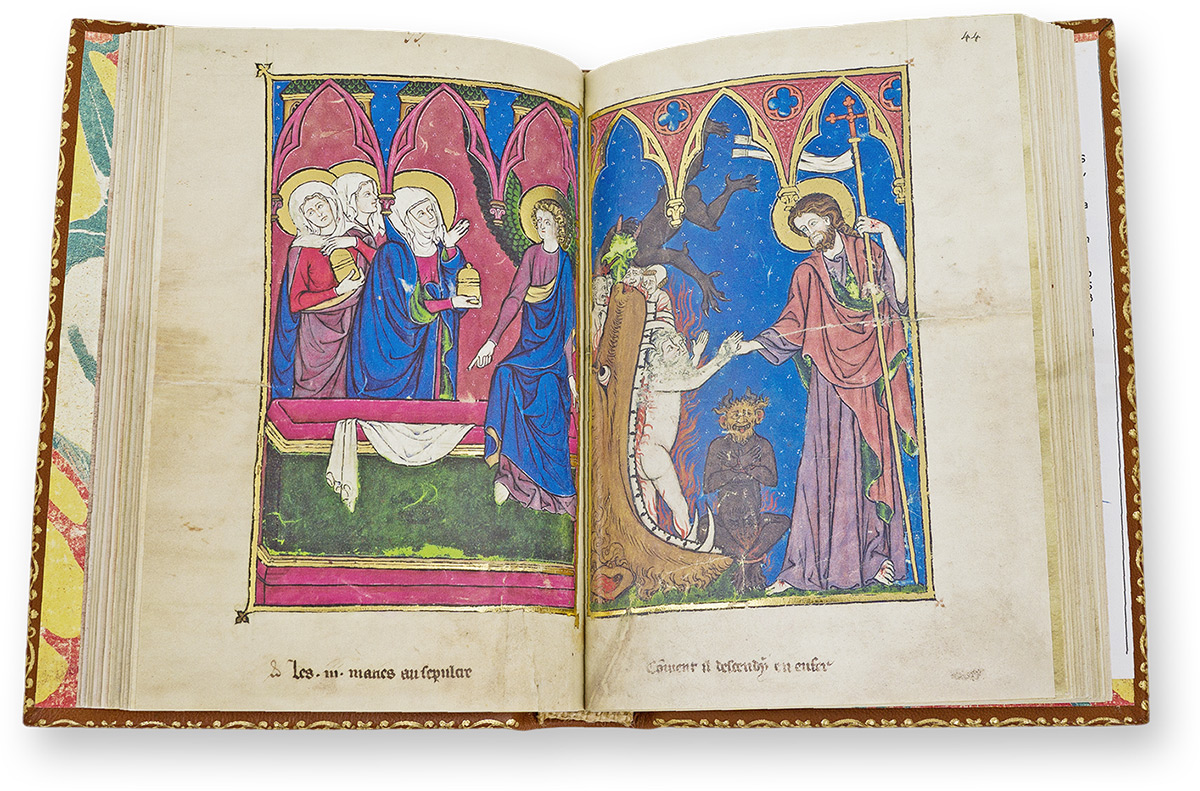 44
Les .iii. maries au sepulcre
Coment il descendy en enfer